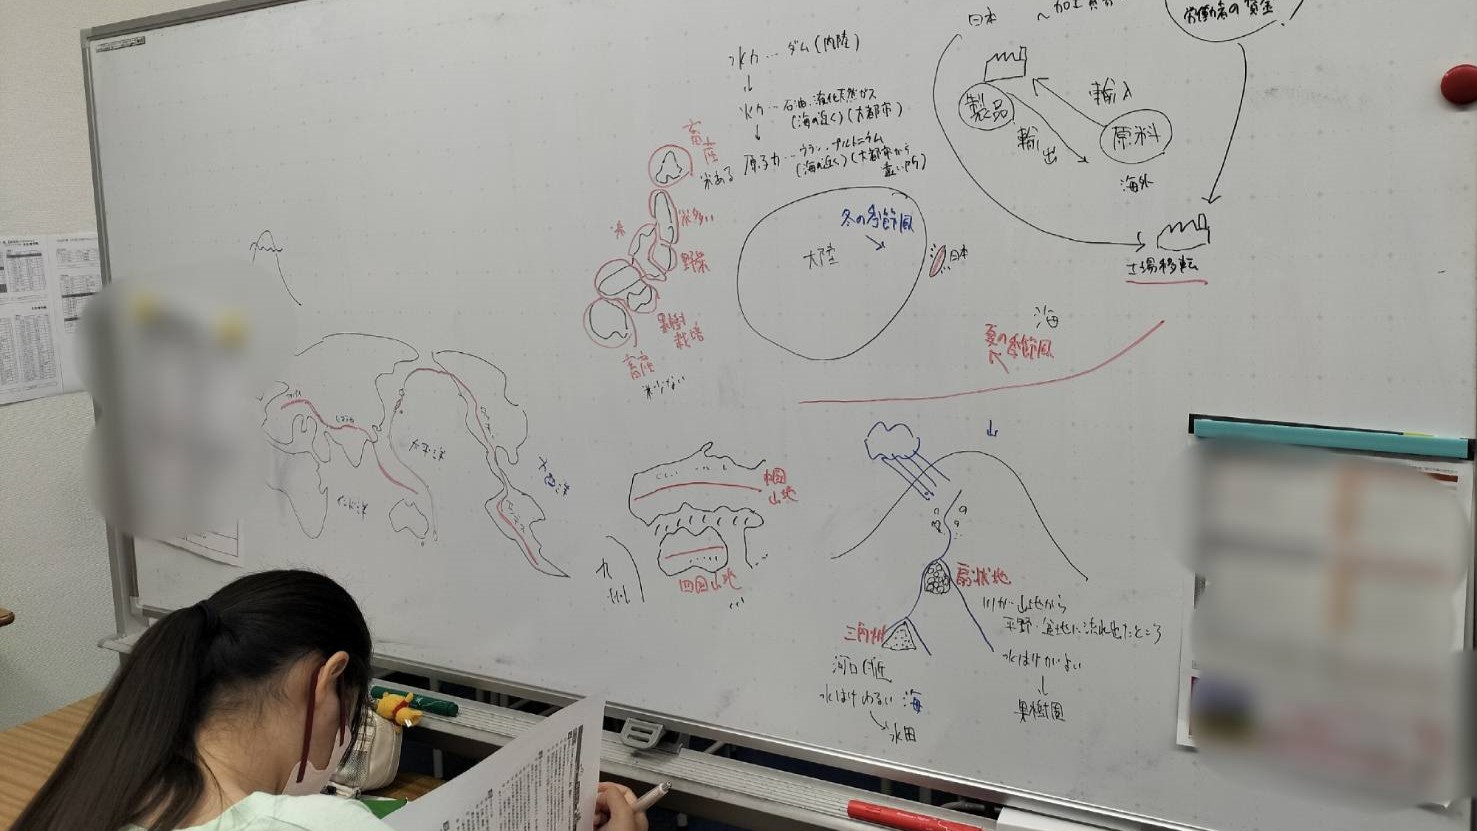 日本
～加工貿易
労働者の賃金
水力…ダム(内陸)
↓
火力…石油・液化天然ガス
(海の近く)(大都市)
↓
原子力…ウラン、プルトニウム
(海の近く)(大都市から
遠い所)
製品
輸入
輸出
原料
海外
工場移転
畜産
米多い
米
野菜
果樹
栽培
畜産
米少ない
大陸
冬の季節風
日本
海
夏の季節風
太平洋
大西洋
インド洋
中国
山地
四国山地
九州
山
扇状地
川が山地から
平野・盆地に流れ出たところ
水はけがいい
↓
果樹園
三角州
河口付近
水はけわるい
海
水田